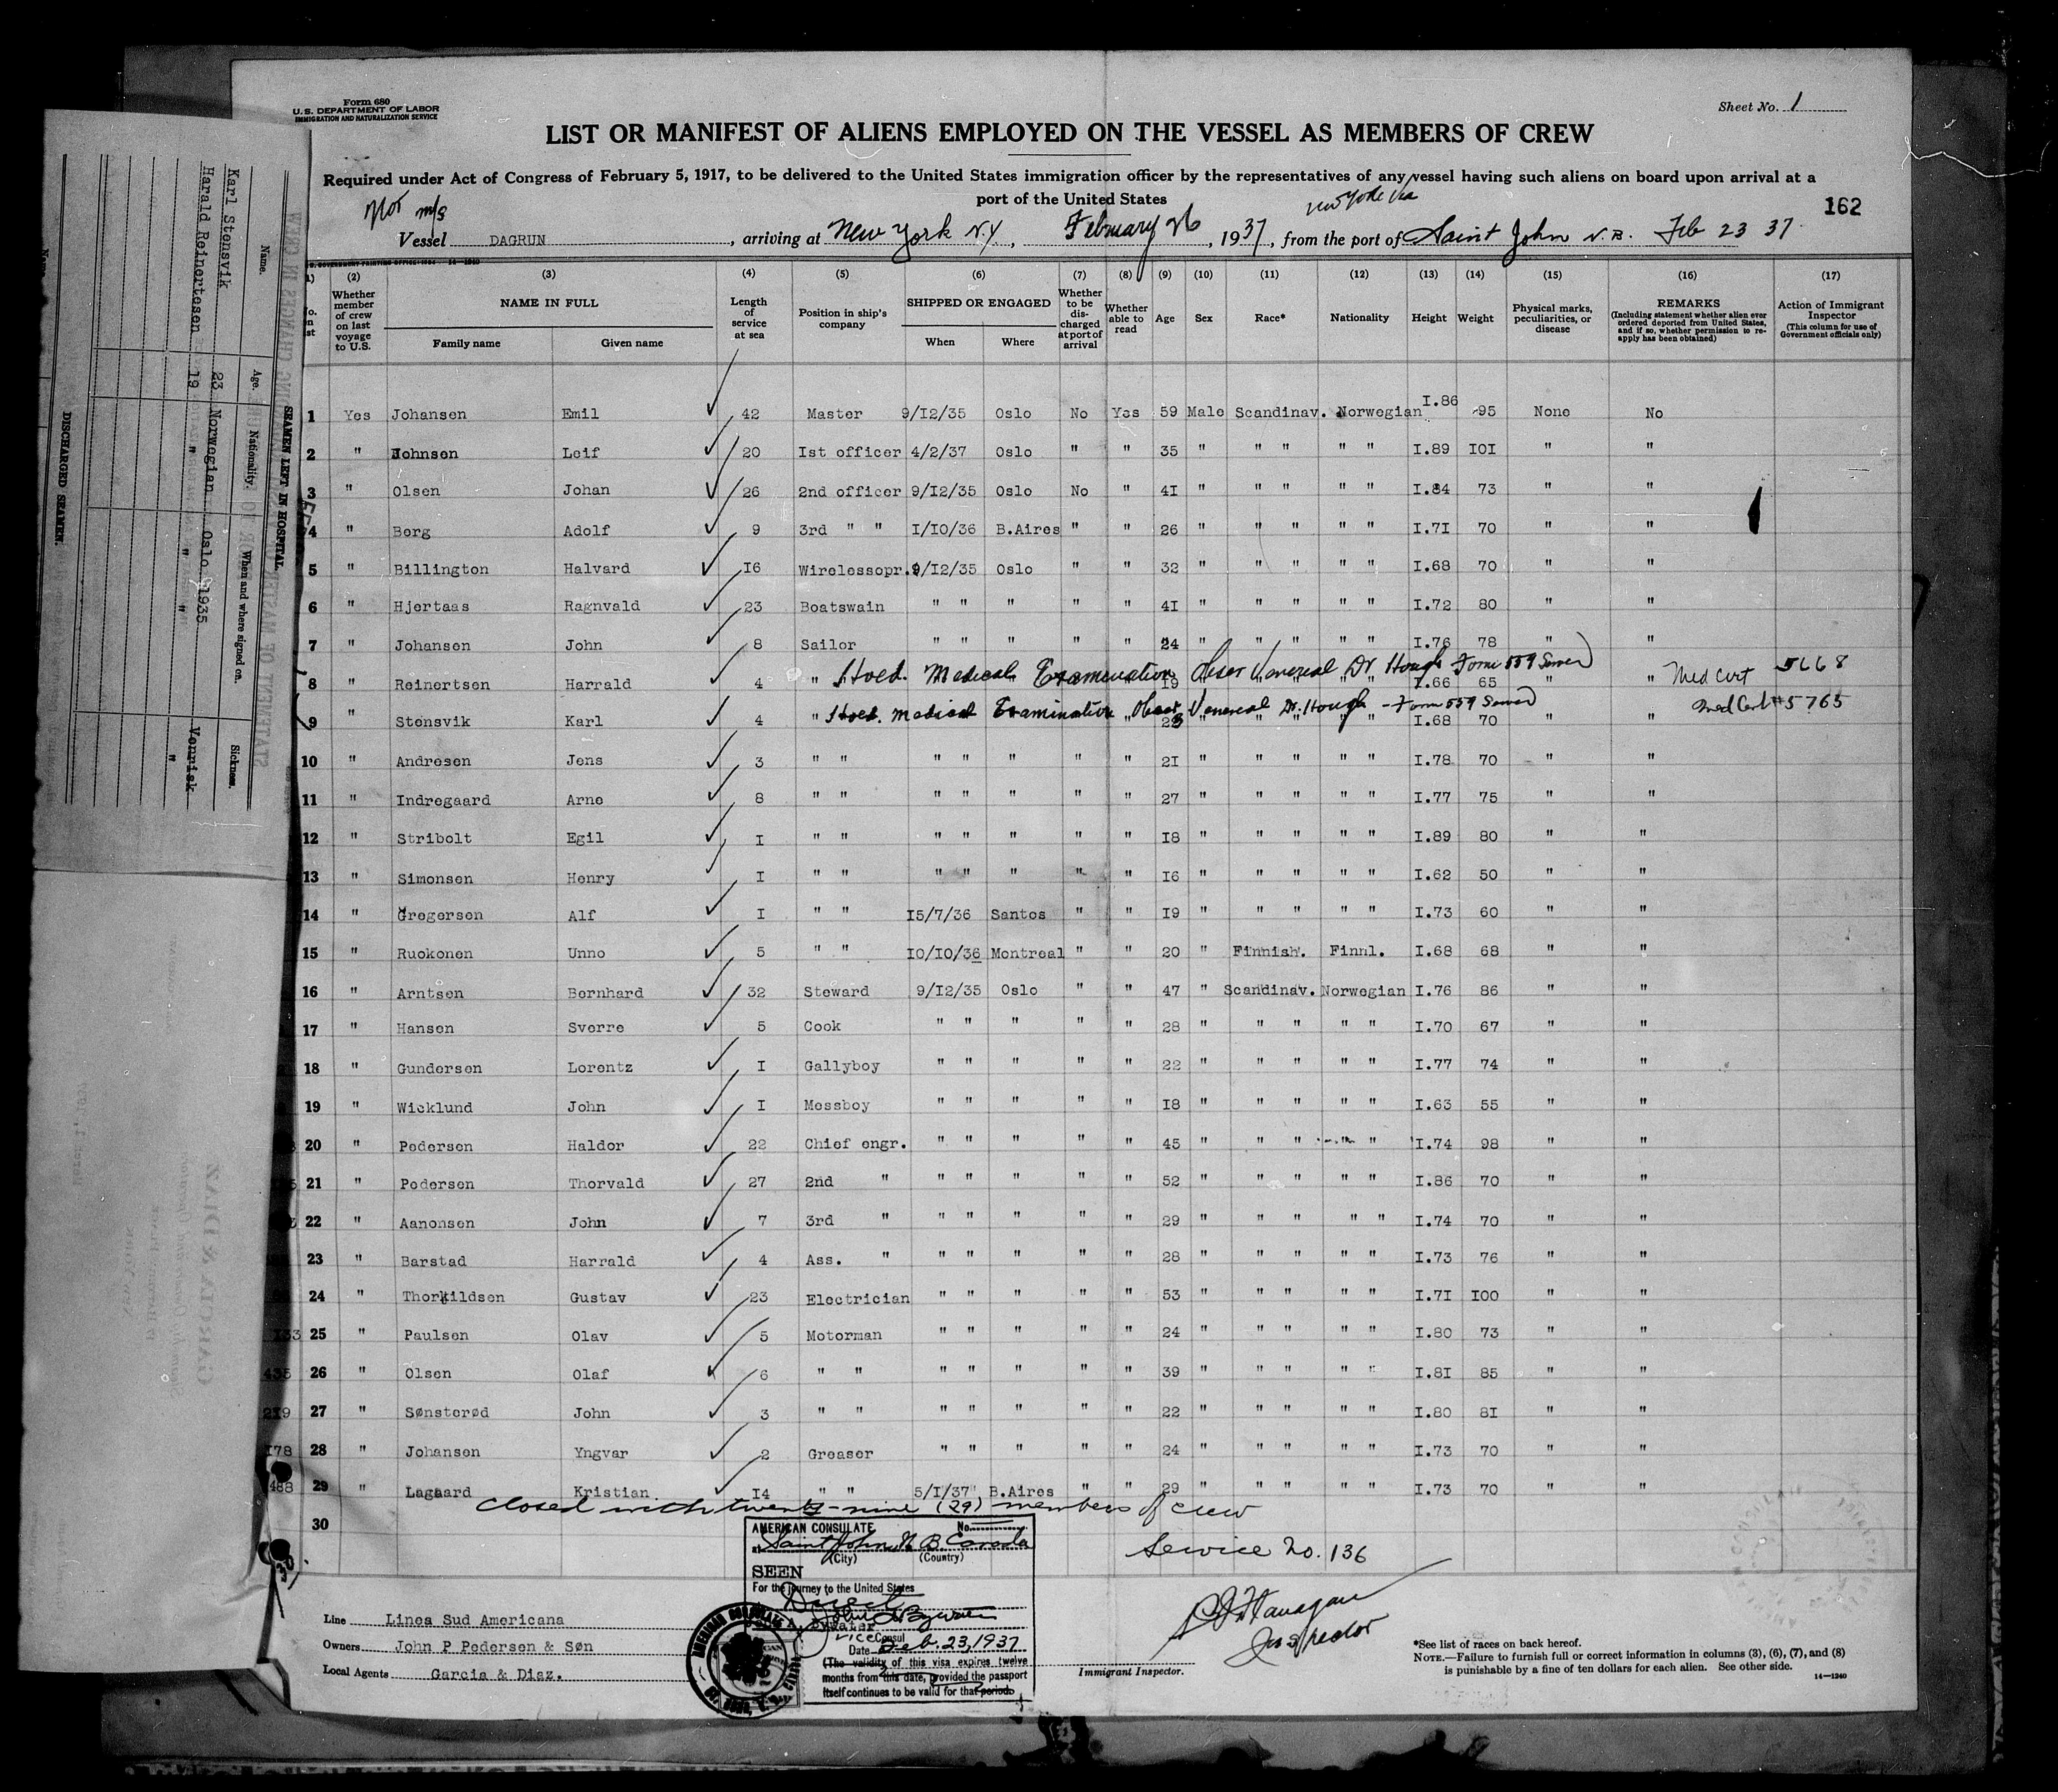 Form 680
U. S. DEPARTMENT OF LABOR
IMMIGRATION AND NATURALIZATION SERVICE
Sheet No. 1
LIST OR MANIFEST OF ALIENS EMPLOYED ON THE VESSEL AS MEMBERS OF CREW
Required under Act of Congress of February 5, 1917, to be delivered to the United States immigration officer by the representatives of any vessel having such aliens on board upon arrival at a
port of the United States
162
Nor m/s
New York via
Vessel DAGRUN, arriving at New York N.Y, February 26, 1937, from the port of Saint John N.B. Feb 23 37
(2) (3) (4) (5) (6) (7) (8) (9) (10) (11) (12) (13) (14) (15) (16) (17)
Whether member of crew on last voyage to U.S. NAME IN FULL Family name Given name Length of service at sea Position in ship's company SHIPPED OR ENGAGED When Where Whether to be discharged at port of arrival Whether able to read Age Sex Race* Nationality Height Weight Physical marks, peculiarities, or disease REMARKS (Including statement whether alien ever ordered deported from United States, and if so, whether permission to reapply has been obtained) Action of Immigrant Inspector (This column for use of Government officials only)
1 Yes Johansen Emil 42 Master 9/I2/35 Oslo No Yes 59 Male Scandinav. Norwegian I.86 95 None No
2 " Johnsen Leif 20 Ist officer 4/2/37 Oslo " " 35 " " " " " I.89 IOI " "
3 " Olsen Johan 26 2nd officer 9/I2/35 Oslo No " 4I " " " " " I.84 73 " "
4 " Berg Adolf 9 3rd " " I/IO/36 B.Aires " " 26 " " " " " I.7I 70 " "
5 " Billington Halvard I6 Wirelessopr. 9/I2/35 Oslo " " 32 " " " " " I.68 70 " "
6 " Hjertaas Ragnvald 23 Boatswain " " " " " 4I " " " " " I.72 80 " "
7 " Johansen John 8 Sailor " " " " " 24 " " " " " I.76 78 " "
Hoed. Medical Examination Obser Venereal Dr. Hough Form 559 Served Med Cert 5668
8 " Reinertsen Harrald 4 " I9 " " I.66 65 " "
Hoed. Medical Examination Obser Venereal Dr. Hough - Form 559 Served Med Cert # 5765
9 " Stensvik Karl 4 " " 23 " " I.68 70 " "
10 " Andresen Jens 3 " " " " " " " 2I " " " " " I.78 70 " "
11 " Indregaard Arne 8 " " " " " " " 27 " " " " " I.77 75 " "
12 " Stribolt Egil I " " " " " " " I8 " " " " " I.89 80 " "
13 " Simonsen Henry I " " " " " " " I6 " " " " " I.62 50 " "
14 " Gregersen Alf I " " I5/7/36 Santos " " I9 " " " " " I.73 60 " "
15 " Ruokonen Unno 5 " " IO/IO/36 Montreal " " 20 " Finnish. Finnl. I.68 68 " "
16 " Arntsen Bernhard 32 Steward 9/I2/35 Oslo " " 47 " Scandinav. Norwegian I.76 86 " "
17 " Hansen Sverre 5 Cook " " " " " 28 " " " " " I.70 67 " "
18 " Gundersen Lorentz I Gallyboy " " " " " 22 " " " " " I.77 74 " "
19 " Wicklund John I Messboy " " " " " I8 " " " " " I.63 55 " "
20 " Pedersen Haldor 22 Chief engr. " " " " " 45 " " " " " I.74 98 " "
21 " Pedersen Thorvald 27 2nd " " " " " " 52 " " " " " I.86 70 " "
22 " Aanonsen John 7 3rd " " " " " " 29 " " " " " I.74 70 " "
23 " Barstad Harrald 4 Ass. " " " " " " 28 " " " " " I.73 76 " "
24 " Thorkildsen Gustav 23 Electrician " " " " " 53 " " " " " I.7I IOO " "
25 " Paulsen Olav 5 Motorman " " " " " 24 " " " " " I.80 73 " "
26 " Olsen Olaf 6 " " " " " " " 39 " " " " " I.8I 85 " "
27 " Sønsterød John 3 " " " " " " " 22 " " " " " I.80 8I " "
28 " Johansen Yngvar 2 Greaser " " " " " 24 " " " " " I.73 70 " "
29 " Lagaard Kristian I4 " " 5/I/37 B.Aires " " 29 " " " " " I.73 70 " "
closed with twenty-nine (29) members of crew
30
Service No. 136
AMERICAN CONSULATE No.
at Saint John, N. B. Canada
(City) (Country)
SEEN
For the journey to the United States
Direct
Vice Consul
Date Feb. 23, 1937
(The validity of this visa expires twelve
months from this date, provided the passport
itself continues to be valid for that period.
Line Linea Sud Americana
Owners John P Pedersen & Søn
Local Agents Garcia & Diaz.
Inspector
Immigrant Inspector.
*See list of races on back hereof.
NOTE.—Failure to furnish full or correct information in columns (3), (6), (7), and (8)
is punishable by a fine of ten dollars for each alien. See other side.
14—1240
SEAMEN LEFT IN HOSPITAL.
Name. Age. Nationality. When and where signed on. Sickness.
Karl Stensvik 23 Norwegian Oslo 1935 Vennisk
Harald Reinertesen 19 " " "
DISCHARGED SEAMEN.
Name
GARCIA & DIAZ